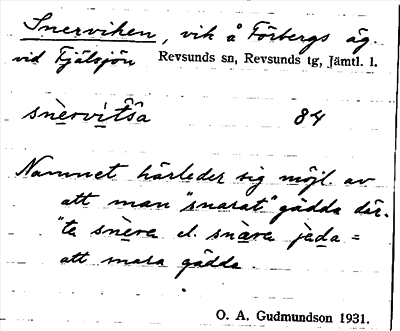 Snerviken, vik å Förbergs äg.
vid Fjälsjön Revsunds sn, Revsunds tg, Jämtl. l.
snèrvitša 84
Namnet härleder sig möjl. av
att man "snarat" gädda där.
"ta snèra el. snàra jèda =
att snara gädda.
O. A. Gudmundson 1931.